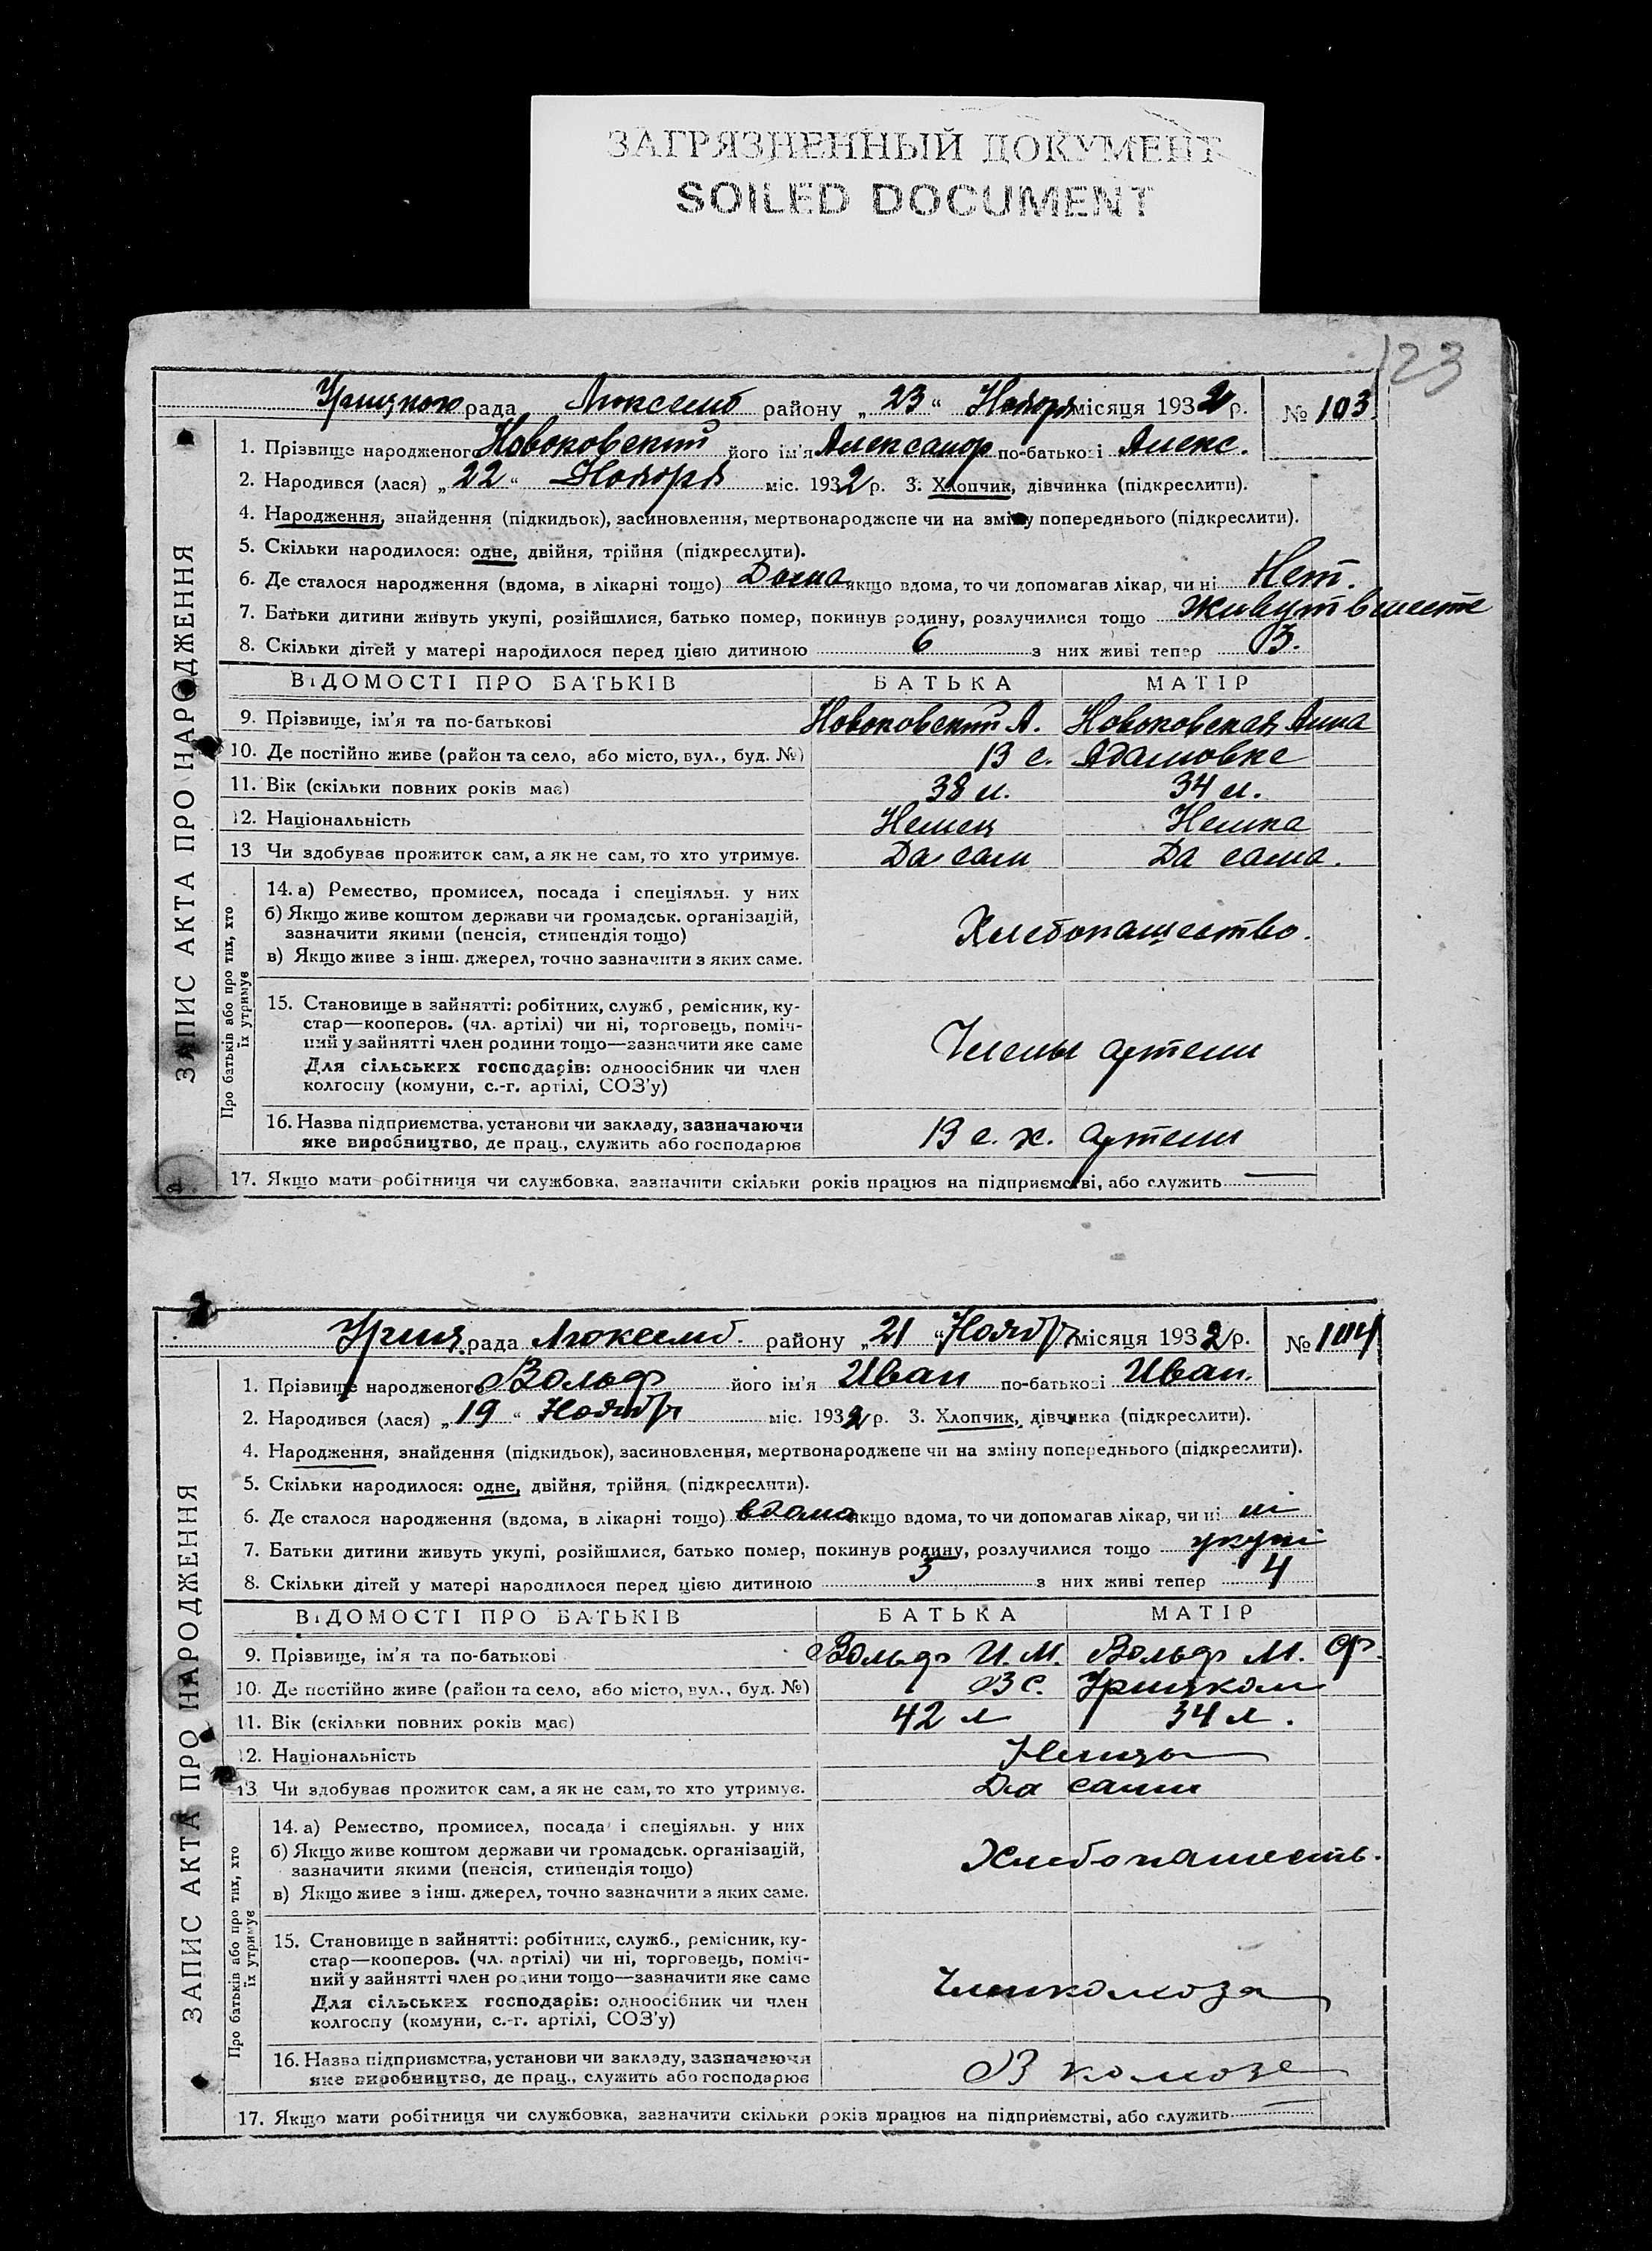 ЗАГРЯЗНЕННЫЙ ДОКУМЕНТ
SOILED DOCUMENT
123
рада Люксемб району „23“ Ноября місяця 1932 р. № 103
1. Прізвище народженого Новоковский його ім'я Александр по-батькові Алекс.
2. Народився (лася) „22“ Ноября міс. 1932 р. 3. Хлопчик, дівчинка (підкреслити).
4. Народження, знайдення (підкидьок), засиновлення, мертвонароджене чи на зміну попереднього (підкреслити).
5. Скільки народилося: одне, двійня, трійня (підкреслити).
6. Де сталося народження (вдома, в лікарні тощо) Дома якщо вдома, то чи допомагав лікар, чи ні Нет.
7. Батьки дитини живуть укупі, розійшлися, батько помер, покинув родину, розлучилися тощо живут вместе
8. Скільки дітей у матері народилося перед цією дитиною 6 з них живі тепер 3.
ВІДОМОСТІ ПРО БАТЬКІВ БАТЬКА МАТІР
9. Прізвище, ім'я та по-батькові Новоковский А. Новоковская Анна
10. Де постійно живе (район та село, або місто, вул., буд. №) В с. Адамовке
11. Вік (скільки повних років має) 38 л. 34 л.
12. Національність Немец Немка
13 Чи здобував прожиток сам, а як не сам, то хто утримує. Да сам Да сама.
14. а) Ремество, промисел, посада і спеціяльн. у них
б) Якщо живе коштом держави чи громадськ. організацій,
зазначити якими (пенсія, стипендія тощо) Хлебопашество.
в) Якщо живе з інш. джерел, точно зазначити з яких саме.
15. Становище в зайнятті: робітник, служб., ремісник, ку-
стар—кооперов. (чл. артілі) чи ні, торговець, поміч-
ний у зайнятті член родини тощо—зазначити яке саме Члены артели
Для сільських господарів: одноосібник чи член
колгоспу (комуни, с.-г. артілі, СОЗ'у)
16. Назва підприємства, установи чи закладу, зазначаючи
яке виробництво, де прац., служить або господарює В с. х. артели
17. Якщо мати робітниця чи службовка, зазначити скільки років працює на підприємстві, або служить —
ЗАПИС АКТА ПРО НАРОДЖЕННЯ
Про батьків або про тих, хто
їх утримує
рада Люксемб. району „21“ Ноябр місяця 1932 р. № 104
1. Прізвище народженого Вольф його ім'я Иван по-батькові Иван.
2. Народився (лася) „19“ Ноябр міс. 1932 р. 3. Хлопчик, дівчинка (підкреслити).
4. Народження, знайдення (підкидьок), засиновлення, мертвонароджене чи на зміну попереднього (підкреслити).
5. Скільки народилося: одне, двійня, трійня (підкреслити).
6. Де сталося народження (вдома, в лікарні тощо) вдома якщо вдома, то чи допомагав лікар, чи ні ні
7. Батьки дитини живуть укупі, розійшлися, батько помер, покинув родину, розлучилися тощо укупі
8. Скільки дітей у матері народилося перед цією дитиною 5 з них живі тепер 4
ВІДОМОСТІ ПРО БАТЬКІВ БАТЬКА МАТІР
9. Прізвище, ім'я та по-батькові Вольф И. М. Вольф М. Ф.
10. Де постійно живе (район та село, або місто, вул., буд. №) В с.
11. Вік (скільки повних років має) 42 л 34 л.
12. Національність Немцы
13 Чи здобував прожиток сам, а як не сам, то хто утримує. Да сами
14. а) Ремество, промисел, посада і спеціяльн. у них
б) Якщо живе коштом держави чи громадськ. організацій,
зазначити якими (пенсія, стипендія тощо) Хлебопашеств.
в) Якщо живе з інш. джерел, точно зазначити з яких саме.
15. Становище в зайнятті: робітник, служб., ремісник, ку-
стар—кооперов. (чл. артілі) чи ні, торговець, поміч-
ний у зайнятті член родини тощо—зазначити яке саме
Для сільських господарів: одноосібник чи член
колгоспу (комуни, с.-г. артілі, СОЗ'у)
16. Назва підприємства, установи чи закладу, зазначаючи
яке виробництво, де прац., служить або господарює В колхозе
17. Якщо мати робітниця чи службовка, зазначити скільки років працює на підприємстві, або служить —
ЗАПИС АКТА ПРО НАРОДЖЕННЯ
Про батьків або про тих, хто
їх утримує